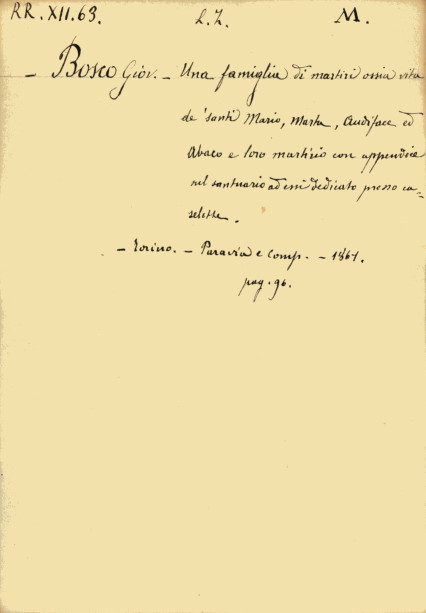 RR.XII.63. L.Z. M.
- Bosco Giov. - Una famiglia di martiri ossia vita
de' santi Mario, Marta, Audiface ed
Abaco e loro martirio con appendice
nel santuario ad essi dedicato presso ca=
selette.
- Torino. - Paravia e Comp. - 1861.
pag. 96.